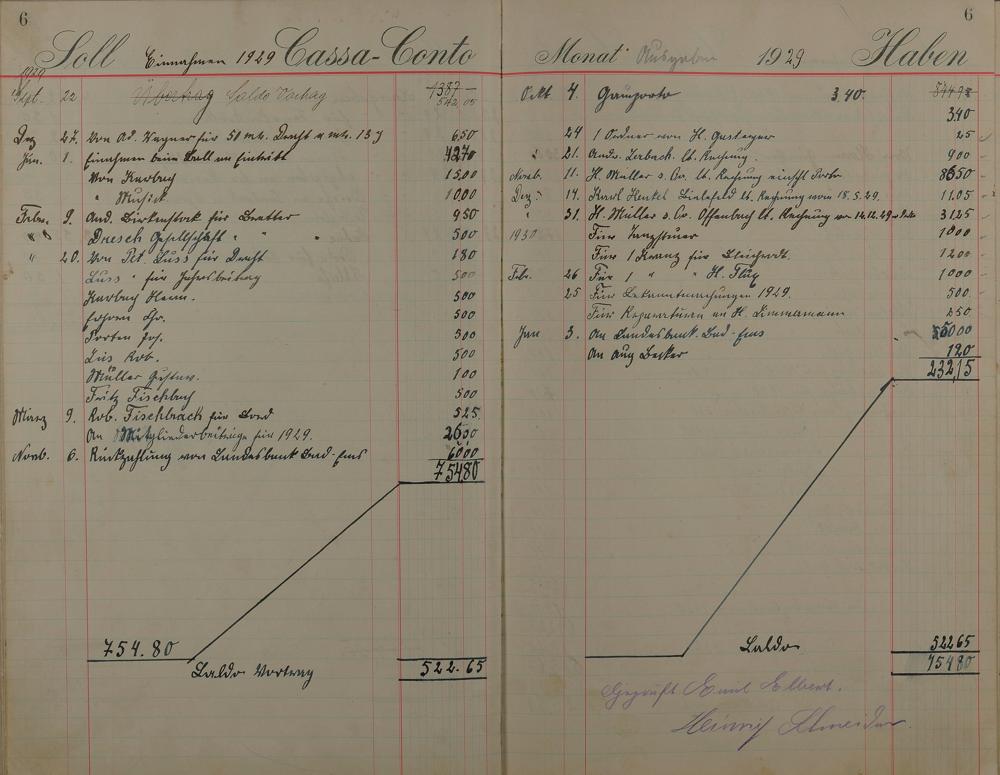 6
Soll Einnahmen 1929 Cassa-Conto
1929
Sept. 22 Übertrag Saldo Vortrag 1387 -
542 05
Dez 27. Von Ad. Wagner für 50 mtr. Draht a mtr. 13 ₰ 6 50
Jan. 1. Einnahmen beim Ball an Eintritt 42 70
Von Karbach 15 00
" Musick 10 00
Febr. 9. And. Birkenstock für Bretter 9 50
" 8 Dresch Gesellschaft " " " 5 00
" 20. Von Pet. Luss für Draht 1 80
Luss " für Jahresbeitrag 5 00
Karbach Herm. 5 00
Chr. 5 00
Porten Jos. 5 00
Rob. 5 00
Müller Gustav. 1 00
Fritz Fischbach 5 00
März 9. Rob. Fischbach für 5 25
An Mitgliederbeiträge für 1929. 26 50
Novb. 6. Rückzahlung von Landesbank Bad-Ems 60 00
754 80
754.80
Saldo Vortrag 522.65
6
Monat Ausgaben 1929 Haben
Okt. 4. Porto 3.40.
3 40
24 1 Ordner von H. 25
" 21. Andr. Zerbach. lt. Rechnung. 9 00
Novb. 11. H. Müller & Co. lt. Rechnung einschl. Porto 86 50
Dez. 14. Karl Henkel Bielefeld lt. Rechnung vom 18.5.29. 11.05
" 31. H. Müller & Co. Offenbach lt. Rechnung von 14.12.29 31 25
1930 Für Tanzsteuer 10 00
Für 1 Kranz für 12 00
Feb. 26 Für 1 " " H. Flug 10 00
25 Für Bekanntmachungen 1929. 5 00
Für Reparaturen an H. Zimmermann 2 50
Jan 3. An Landesbank Bad-Ems 50 00
An Aug Becker 1 20
232,15
Saldo 522 65
754 80
Geprüft Emil Elbert.
Heinrich Schneider